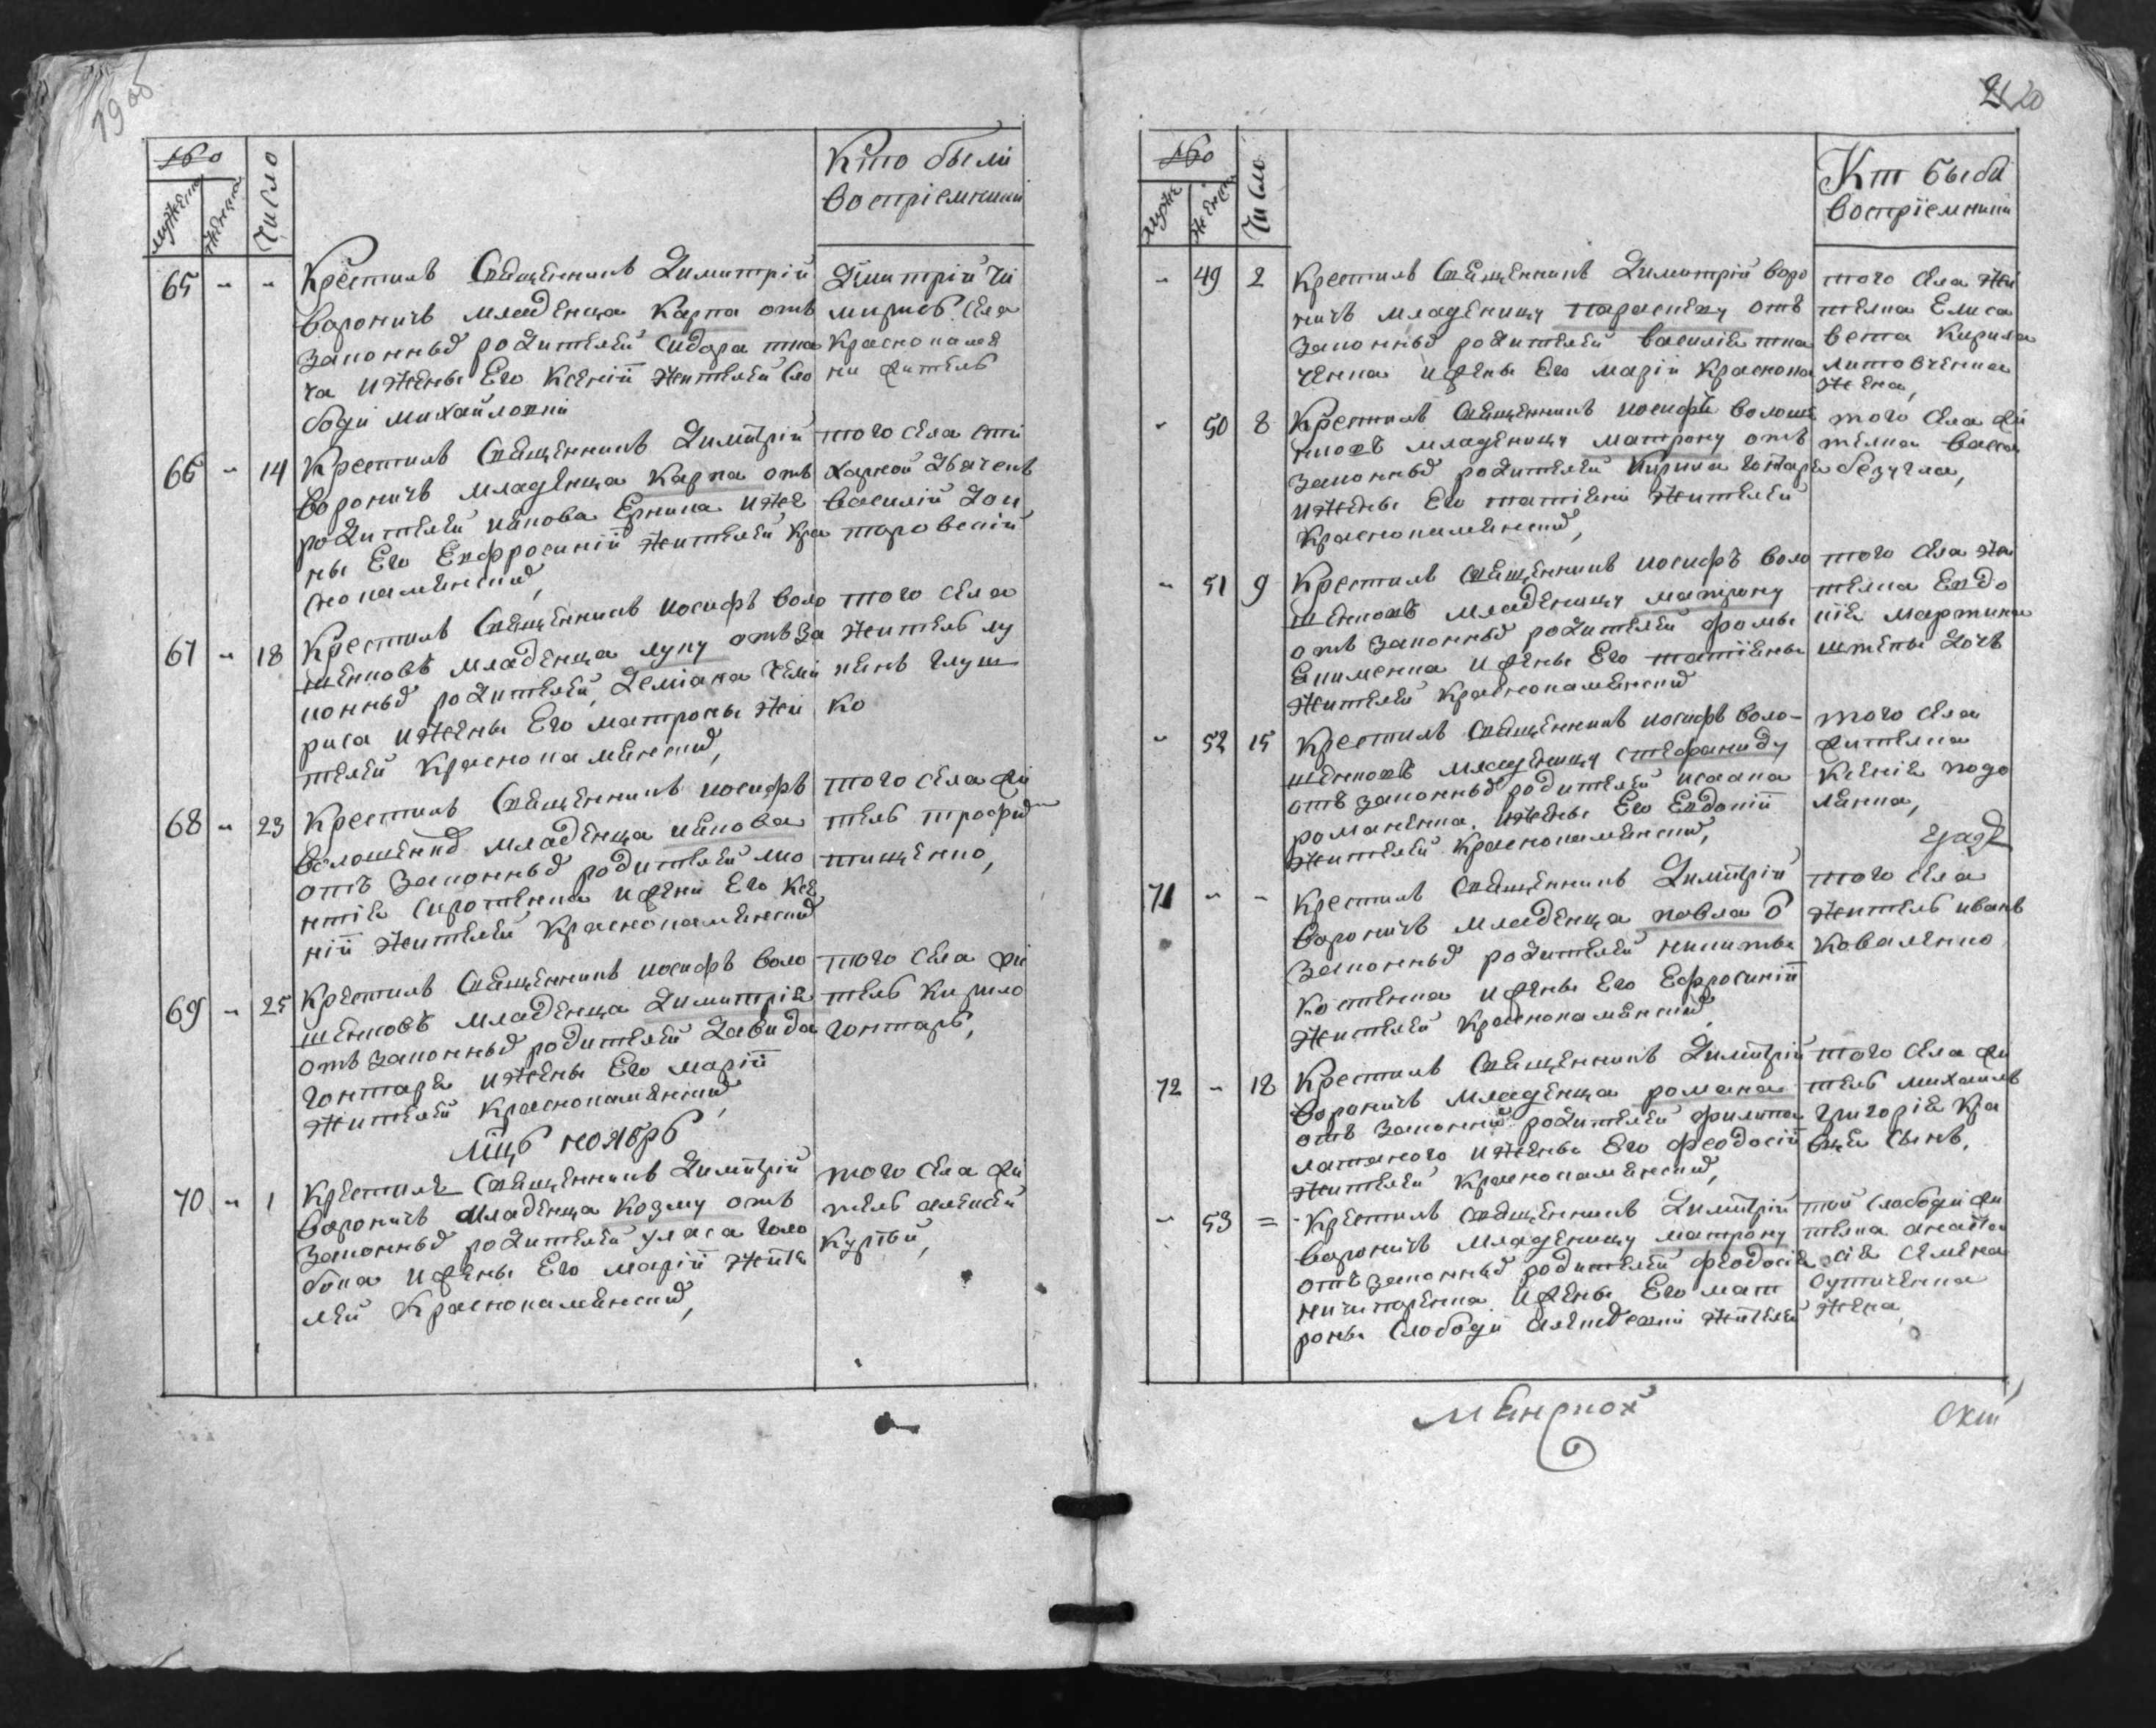 19 об
№
мужеска
женска
Число
Кто были
восприемники
65 - - Крестилъ Священникъ Димитрій
Вороничъ младенца Карпа отъ
законныхъ родителей Сидора тка
ча и жены Его Ксеніи жителей сло
боды михайловки
Димитрій чи
мирисъ села
Краснополов
ки житель
66 - 14 Крестилъ Священникъ Димитрій
Вороничъ младенца Карпа отъ
родителей Иякова Ерника и же
ны Его Евфросиніи жителей Кра
снополянскихъ,
того села сти
харной Дьячекъ
василій Дом
таровскій
67 - 18 Крестилъ Священникъ иосифъ воло
шеновъ младенца луку отъ за
конныхъ родителей, Деміана Чеми
риса и жены Его матроны жи
телей Краснополянскихъ,
того села
житель лу
кянъ глуш
ко
68 - 23 Крестилъ Священникъ иосифъ
волошенко младенца иякова
отъ законныхъ родителей лео
нтія сиротенка и жены Его Ксе
ніи жителей Краснополянскихъ
того села жи
тель трофимъ
тищенко,
69 - 25 Крестилъ Священникъ иосифъ воло
шеновъ младенца Димитрія
отъ законныхъ родителей Давида
Гонтаря и жены Его маріи
жителей Краснополянскихъ,
того села жи
тель Кирило
гонтарь,
мцъ ноябрь
70 - 1 Крестилъ Священникъ Димитрій
Вороничъ младенца Козму отъ
законныхъ родителей уласа Голо
бока и жены Его маріи жите
лей Краснополянскихъ,
того села жи
тель алексей
Куртый,
20
№
муже
женск
Число
Кт были
восприемники
- 49 2 Крестилъ Священникъ Димитрій воро
ничъ младеницу параскеву отъ
законныхъ родителей василія тка
ченка и жены Его маріи Краснопол
того села жи
телка Елиса
вета Кирила
литовченка
жена,
- 50 8 Крестилъ Священникъ иосифъ волоше
новъ младеницу матрону отъ
законныхъ родителей Кирила Гонтаря
и жены Его татіяни жителей
Краснополянскихъ,
того села жи
телка васса
безугла,
- 51 9 Крестилъ Священникъ иосифъ воло
шеновъ младеницу матрону
отъ законныхъ родителей фомы
Клименка и жены Его татіяны
жителей Краснополянскихъ
того села жи
телка Евдо
кія мартина
дочъ
- 52 15 Крестилъ Священникъ иосифъ воло-
шеновъ младеницу стефаниду
отъ законныхъ родителей исаака
романенка, и жены Его Евдокіи
жителей Краснополянскихъ,
того села
жителка
Ксенія подо
лянка,
71 - - Крестилъ Священникъ Димитрій
Вороничъ младенца павла о
законныхъ родителей никиты
Костенка и жены Его Ефросиніи
жителей Краснополянскихъ,
того села
житель иванъ
Коваленко
72 - 18 Крестилъ Священникъ Димитрій
Вороничъ младенца романа
отъ законныхъ родителей филипа
латаного и жены Его феодосіи
жителей Краснополянскихъ,
того села жи
тель михаилъ
григорія Кра
вця сынъ,
- 53 = Крестилъ Священникъ Димитрій
Вороничъ младеницу матрону
отъ законныхъ родителей феодосія
ничипоренка и жены Его мат
роны слободы жителей
той слободы жи
телка анаста
сія семена
жена